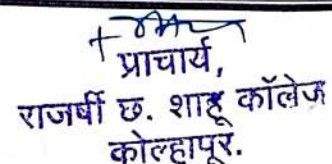 प्राचार्य,
राजर्षी छ. शाहू कॉलेज
कोल्हापूर.